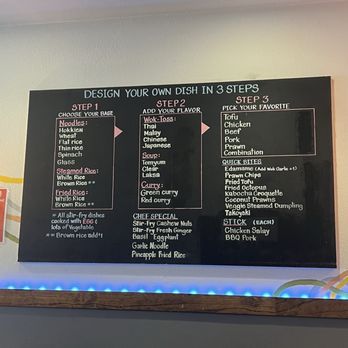 DESIGN YOUR OWN DISH IN 3 STEPS
STEP 1
CHOOSE YOUR BASE
Noodles:
Hokkien
Wheat
Flat rice
Thin rice
Spinach
Glass
Steamed Rice:
White Rice
Brown Rice **
Fried Rice:
White Rice
Brown Rice **
* All stir-fry dishes
cooked with Egg &
lots of Vegetable
** Brown rice add $1
STEP 2
ADD YOUR FLAVOR
Wok-Toss:
Thai
Malay
Chinese
Japanese
Soup:
Tomyum
Clear
Laksa
Curry:
Green curry
Red curry
CHEF SPECIAL
Stir-fry Cashew Nuts
Stir-fry Fresh Ginger
Basil Eggplant
Garlic Noodle
Pineapple Fried Rice
STEP 3
PICK YOUR FAVORITE
Tofu
Chicken
Beef
Pork
Prawn
Combination
QUICK BITES
Edamame
Prawn Chips
Fried Tofu
Fried Octopus
Kabocha Croquette
Coconut Prawns
Veggie Steamed Dumpling
Takoyaki
STICK (EACH)
Chicken Satay
BBQ Pork